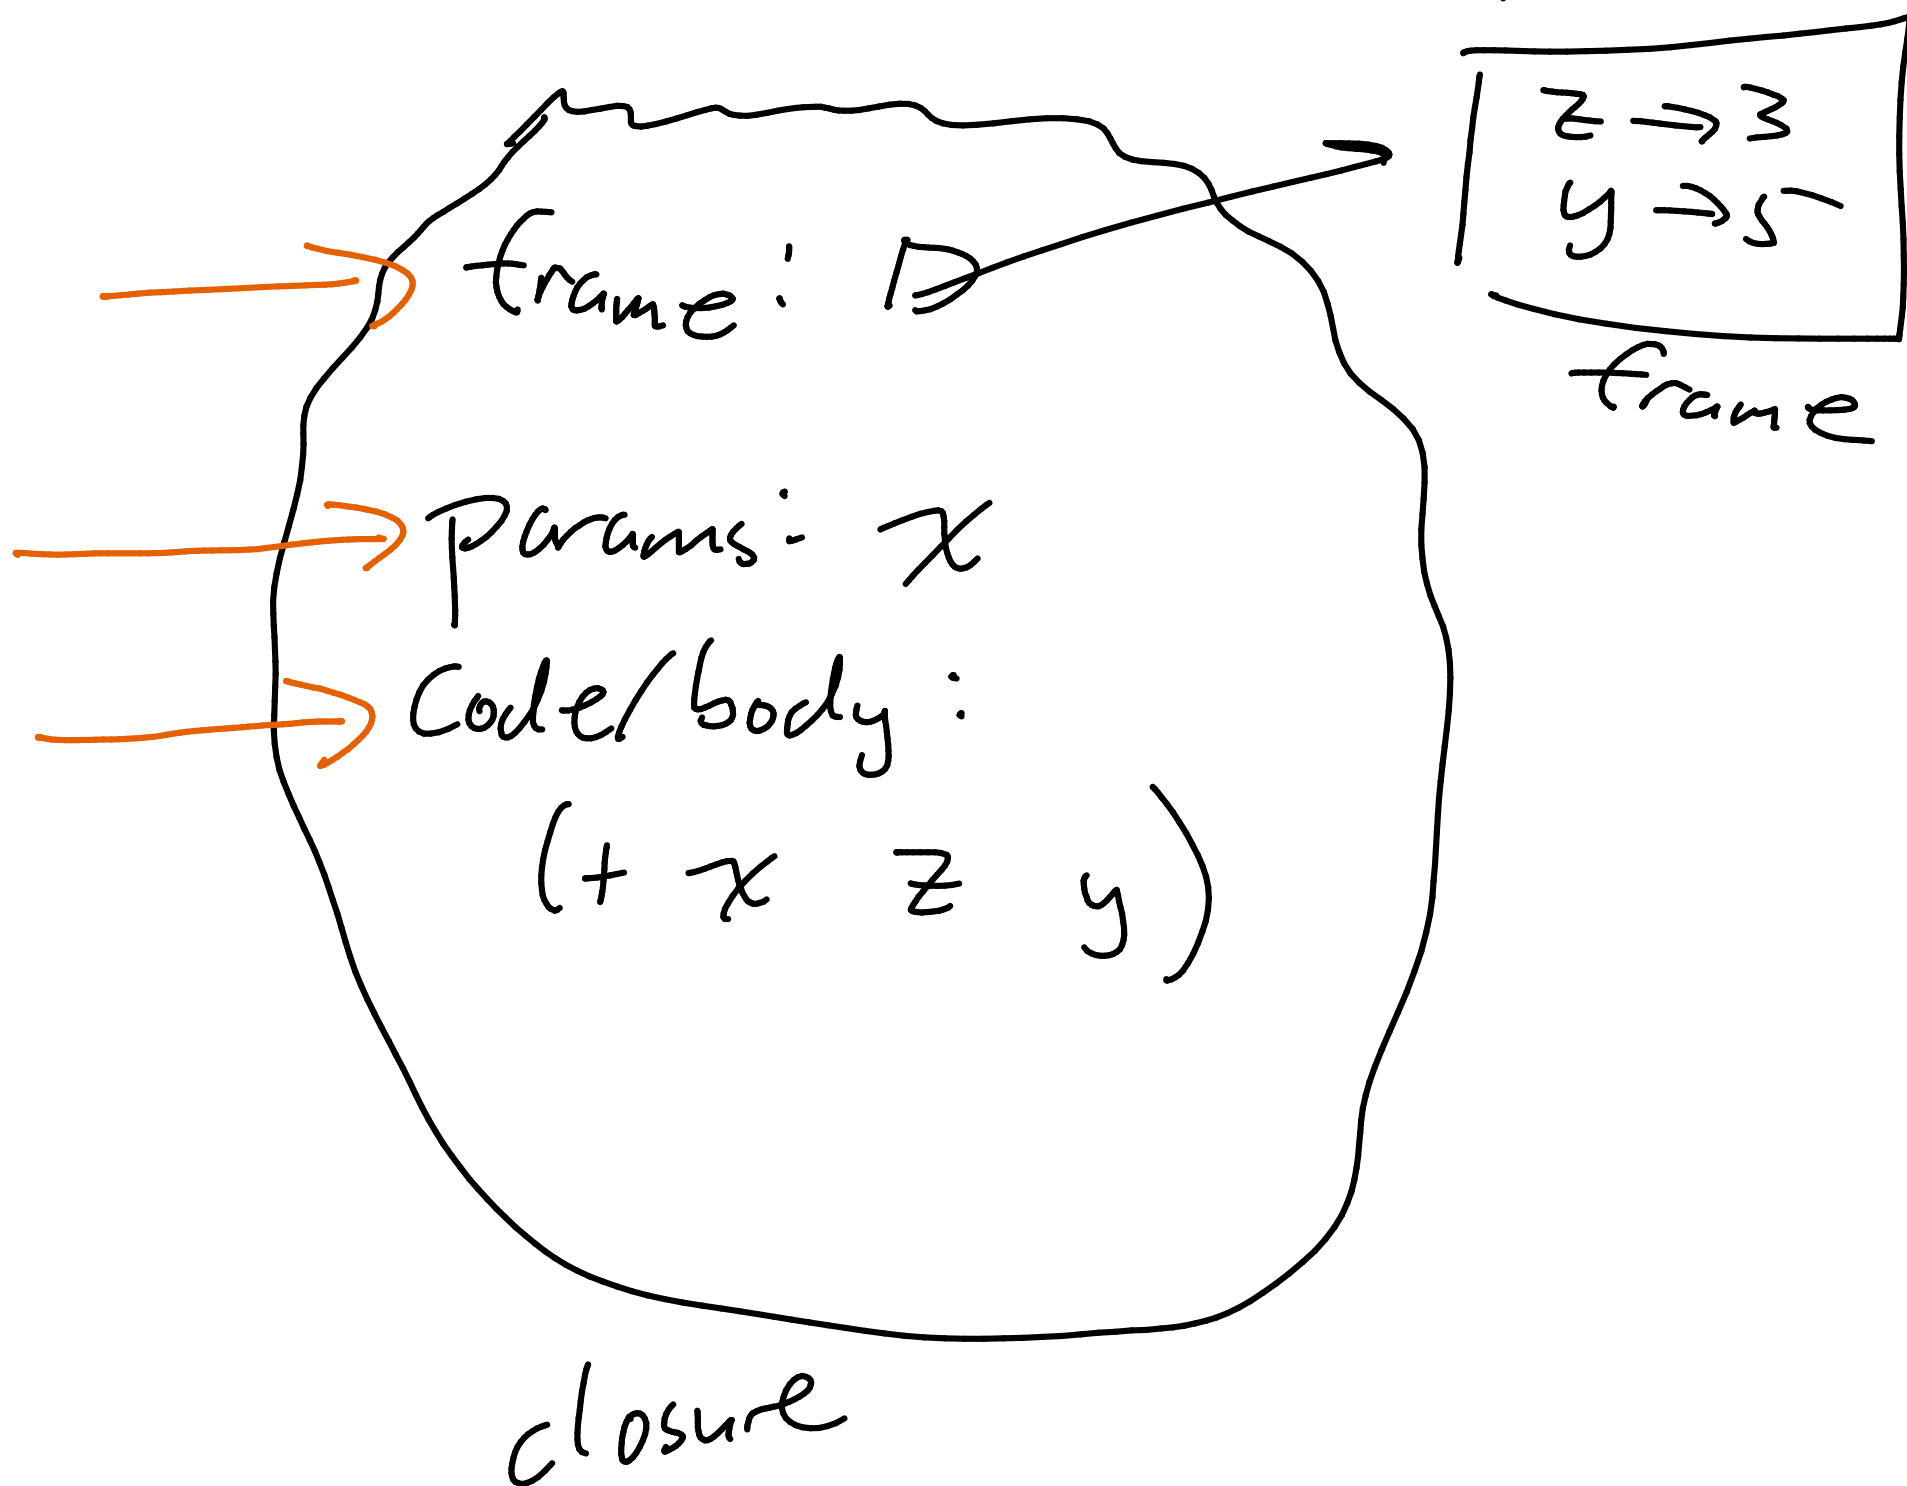 z → 3
y → 5
frame
frame:
params: x
Code/body:
(+ x z y)
closure